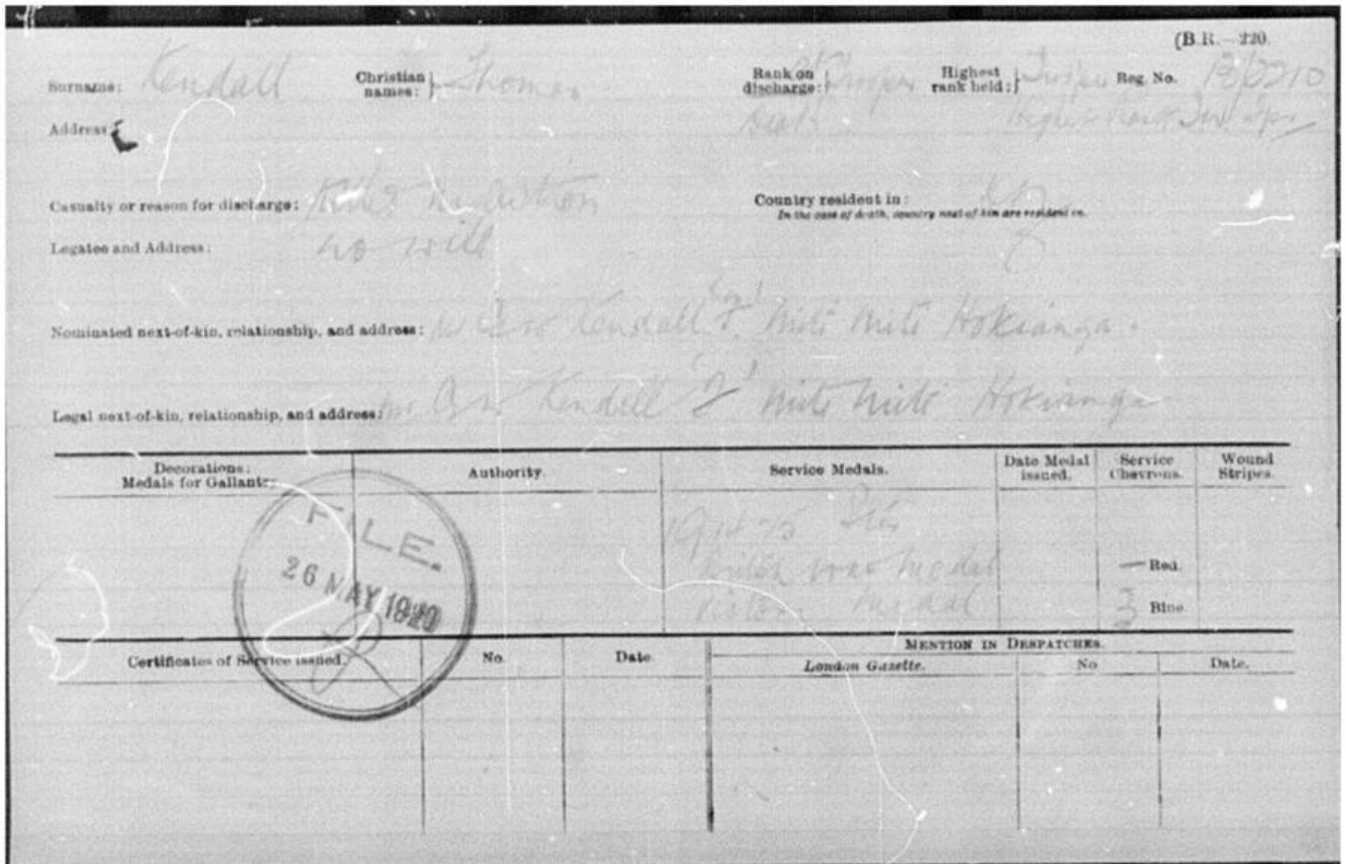 (B.R.—220.
Surname: Kendall Christian names: Thomas Rank on discharge: Trooper Highest rank held: Trooper Reg. No.
Death
Address:
Casualty or reason for discharge: Killed in action Country resident in:
In the case of death, country next of kin are resident in.
Legatee and Address: no will
Nominated next-of-kin, relationship, and address: Kendall Miti Miti Hokianga.
Legal next-of-kin, relationship, and address: Kendall Miti Miti Hokianga
Decorations: Medals for Gallantry. Authority. Service Medals. Date Medal issued. Service Chevrons. Wound Stripes.
FILE.
26 MAY 1920
1914-15 Star
British war medal — Red.
Victory medal 3 Blue.
Certificates of Service issued. No. Date. MENTION IN DESPATCHES.
London Gazette. No Date.